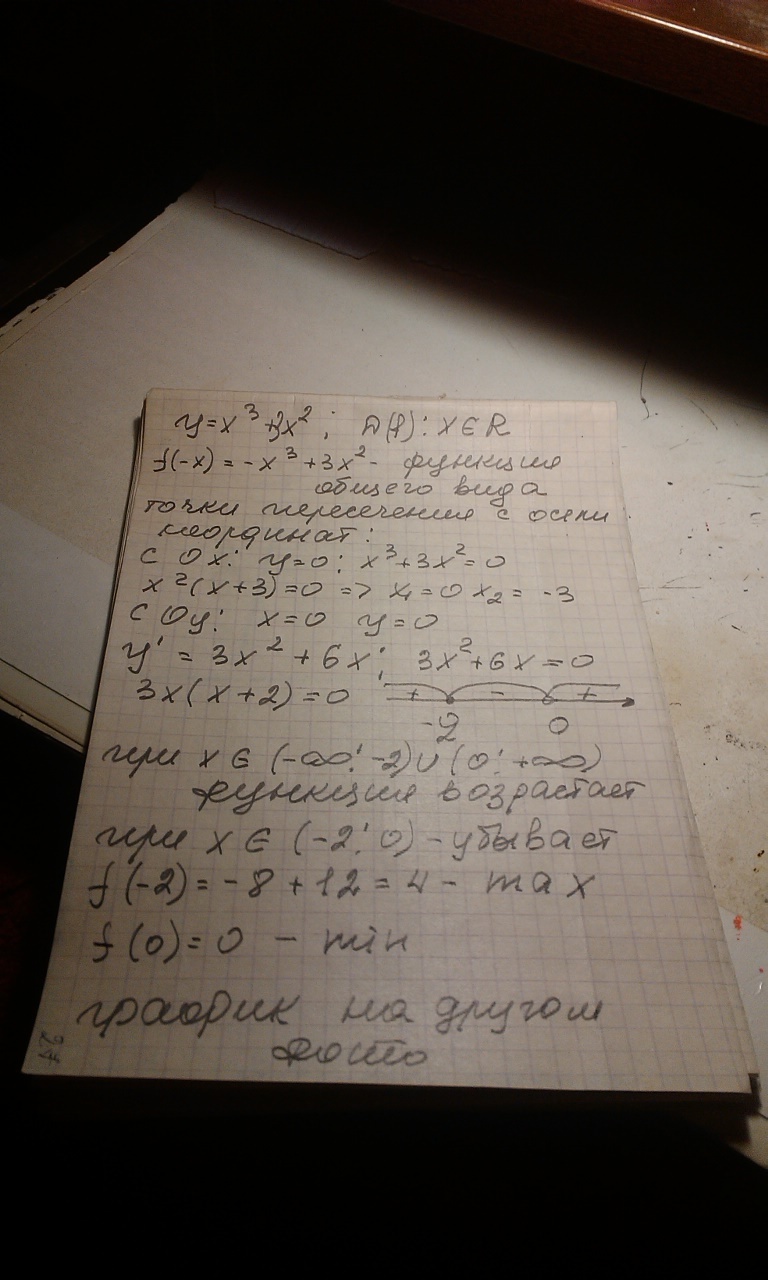 y=x³+3x²; D(f): x∈R
f(-x) = -x³+3x² - функция
общего вида
точки пересечения с осями
координат:
с Ox: y=0: x³+3x²=0
x²(x+3)=0 => x₁=0 x₂= -3
с Oy: x=0 y=0
y' = 3x²+6x; 3x²+6x=0
3x(x+2)=0 + - +
-2 0
при x∈(-∞; -2)∪(0; +∞)
функция возрастает
при x∈(-2; 0) - убывает
f(-2)=-8+12=4 - max
f(0)=0 - min
график на другом
фото